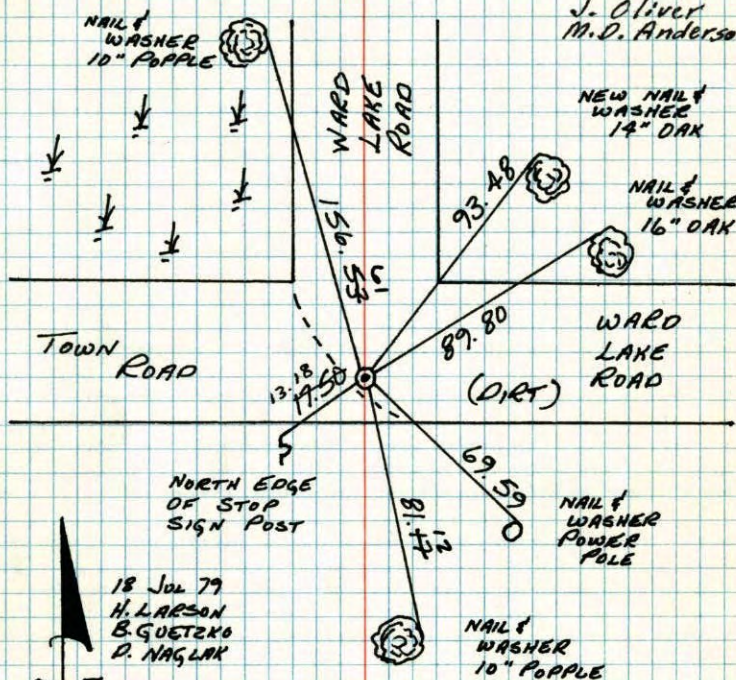 J. Oliver
M.D. Anderso
NAIL &
WASHER
10" POPPLE
WARD
LAKE
ROAD
NEW NAIL &
WASHER
14" OAK
NAIL &
WASHER
16" OAK
156.
93.48
89.80
TOWN
ROAD
WARD
LAKE
ROAD
(DIRT)
13.18
69.59
81.
NORTH EDGE
OF STOP
SIGN POST
NAIL &
WASHER
POWER
POLE
18 JUL 79
H. LARSON
B. GUETZKO
D. NAGLAK
NAIL &
WASHER
10" POPPLE